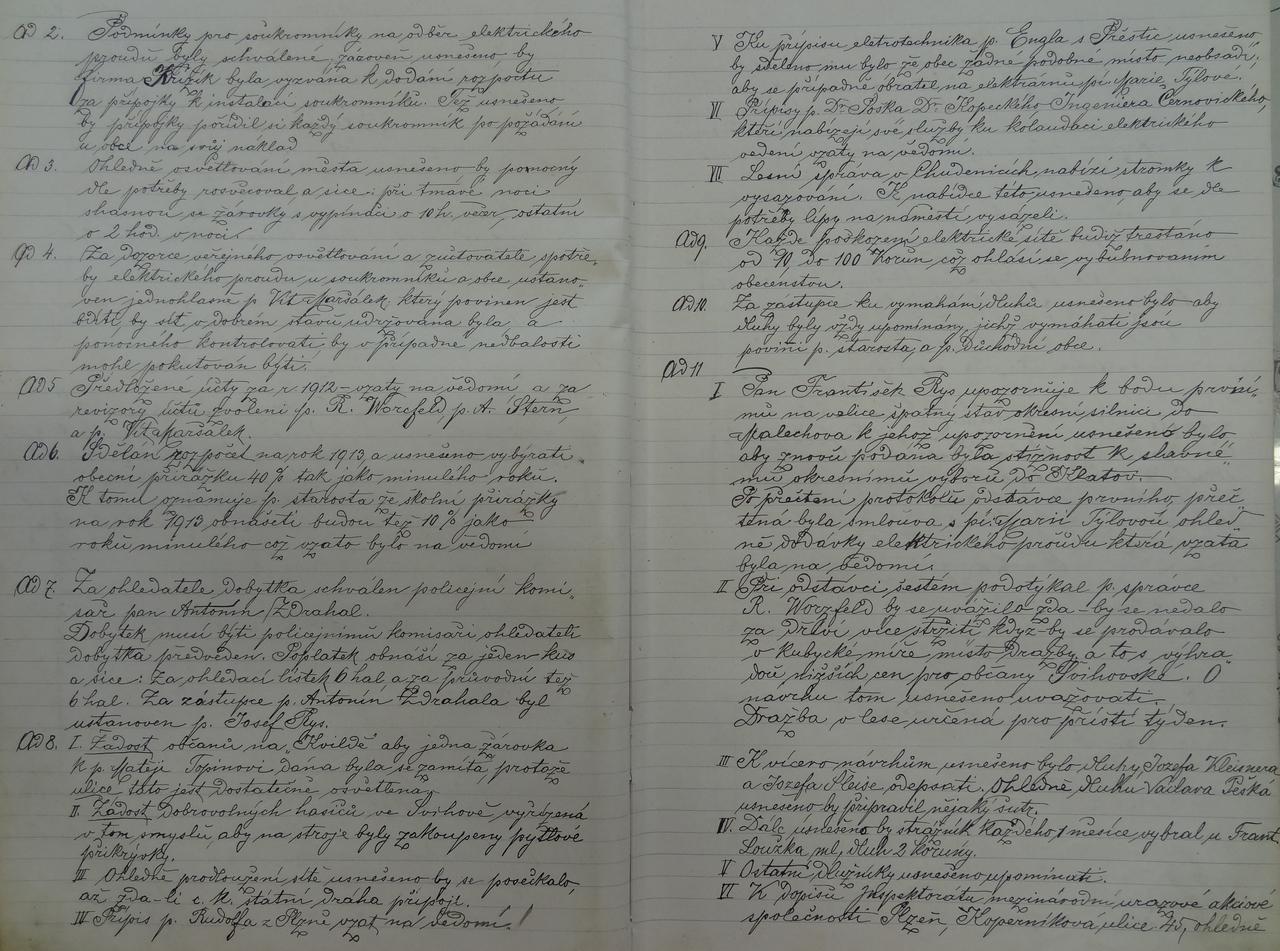 Ad 2. Podmínky pro soukromníky na odběr elektrického
proudu byly schválené, zároveň usneseno by
firma Křižík byla vyzvána k dodání rozpočtu
za přípojky k instalaci soukromníků. Též usneseno
by přípojky pořídil si každý soukromník po požádání
u obce na svůj náklad
Ad 3. Ohledně osvětlování města usneseno by ponocný
dle potřeby rosvěcoval a sice: při tmavé noci
shasnou se žárovky s vypínači o 10 h. večer, ostatní
o 2 hod. v noci.
Ad 4. Za dozorce veřejného osvětlování a zúčtovatele spotře„
by elektrického proudu u soukromníků a obce ustano„
ven jednohlasně p. Vít Maršálek, který povinen jest
bdíti, by síť v dobrém stavu udržována byla, a
ponocného kontrolovati by v případné nedbalosti
mohl pokutován býti.
Ad 5 Předložené účty za r. 1912 – vzaty na vědomí a za
revizory účtů zvoleni p. R. Worzfeld, p. A. Stern,
a p. Vít Maršálek.
Ad 6. Sdělán rozpočet na rok 1913, a usneseno vybírati
obecní přirážku 40% tak jako minulého roku.
K tomu oznamuje p. starosta že školní přirážky
na rok 1913 obnášeti budou též 10% jako
roku minulého což vzato bylo na vědomí
Ad 7. Za ohledatele dobytka schválen policejní komi„
sař pan Antonín Zdrahal.
Dobytek musí býti policejnímu komisaři ohledateli
dobytka předveden. Poplatek obnáší za jeden kus
a sice: Za ohledací lístek 6 hal a za průvodní též
6 hal. Za zástupce p. Antonín Zdrahala byl
ustanoven p. Josef Rys.
Ad 8. I. Žádost občanů na „Kvildě aby jedna žárovka
k p. Matěji Topinovi dána byla se zamítá, protože
ulice tato jest dostatečně osvětlena,
II. Žádost Dobrovolných hasičů ve Švihově vyřízená
v tom smyslu, aby na stroje byly zakoupeny pytlové
přikrývky.
III Ohledně prodloužení sítě usneseno by se posečkalo
až zda-li c. k. státní dráha připojí.
IV Přípis p. Rudolfa z Plzně vzat na vědomí.
V Ku přípisu eletrotechnika p. Engla s Přeštic usneseno
by sděleno mu bylo že obec žádné podobné místo neobsadí,
aby se případně obrátil na elektrárnu pí. Marie Týlové.
VI Přípisy p. Dr. Poška Dr. Kopeckého Ingenieura Černovického,
kteří nabízejí své služby ku kolaudaci elektrického
vedení vzaty na vědomí.
VII Lesní správa v Chudenicích nabízí stromky k
vysazování. K nabídce této usneseno, aby se dle
potřeby lípy na náměstí vysázeli.
Ad 9. Každé poškození elektrické sítě budiž trestáno
od 10, do 100 Korun což ohlásí se vybubnováním
obecenstvu.
Ad 10. Za zástupce ku vymáhání dluhů usneseno bylo aby
dluhy byly vždy upomínány, jichž vymáhati jsou
povini p. starosta a p. Důchodní obce.
Ad 11
I Pan František Rys upozorňuje k bodu první„
mu na velice špatný stav okresní silnici do
Malechova k jehož upozornění usneseno bylo
aby znovu podána byla stížnost k slavné„
mu okresnímu výboru do Klatov.
Po přečtení protokolu odstavce prvního, přeč„
tená byla smlouva s pí. Marií Týlovou ohled„
ně dodávky elektrického proudu která vzata
byla na vědomí.
II Při odstavci šestém podotýkal p. správce
R. Worzfeld by se uvážilo zda-by se nedalo
za dříví více stržiti, když-by se prodávalo
v Kubycké míře místo Dražby a to s výhra„
dou nižších cen pro občany Švihovské. O
návrhu tom usneseno uvažovati.
Dražba v lese určena pro příští týden.
III K vícero návrhům usneseno bylo dluhy Jozefa Kleisnera
a Jozefa Sleise odepsati. Ohledně dluhu Václava Peška
usneseno by připravil nějaký šutr.
IV. Dále usneseno by strážník každého 1 měsíce vybral u Frant.
Loužka ml, dluh 2 koruny.
V Ostatní dlužníky usneseno upomínati.
VI K dopisu Inspektorátu mezinárodní urazové akciové
společnosti Plzeň, Koperníková ulice 45, ohledně